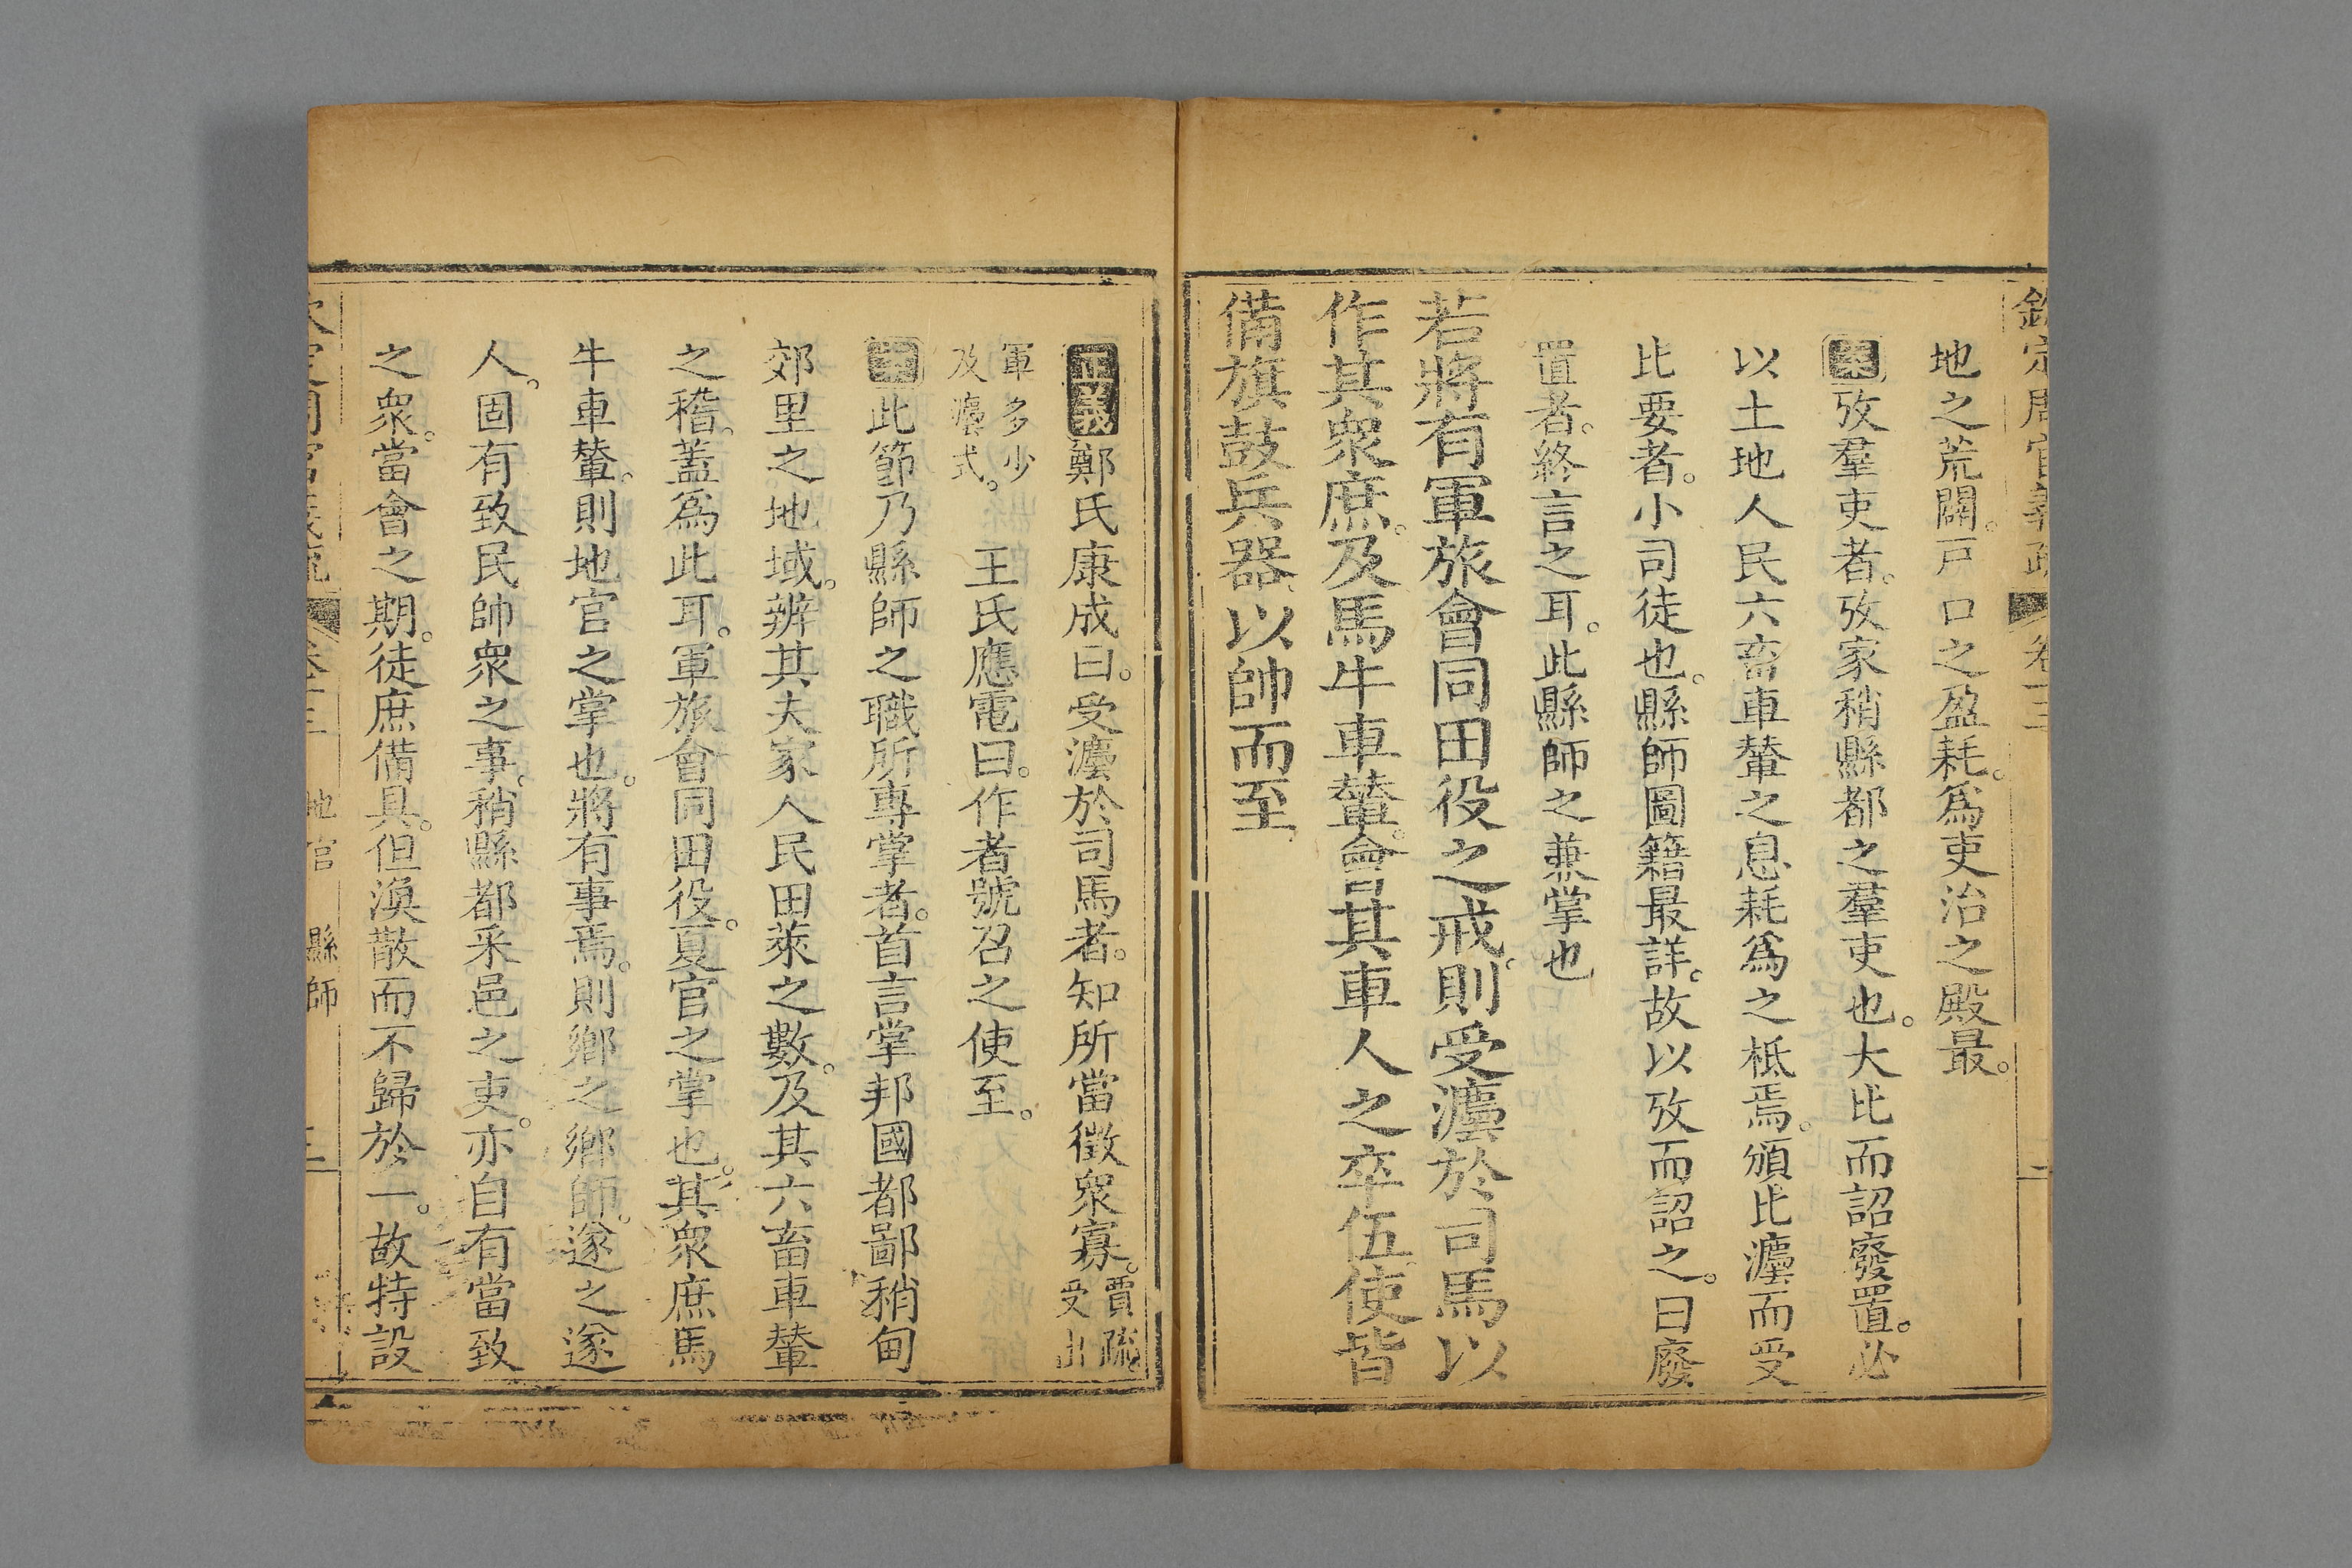 欽定周官義疏 卷十三 二
地之荒闢。戸口之盈耗。爲吏治之殿最。
案攷羣吏者。攷家稍縣都之羣吏也。大比而詔廢置。必
以土地人民六畜車輦之息耗爲之柢焉。頒比灋而受
比要者。小司徒也。縣師圖籍最詳。故以攷而詔之。曰廢
置者。終言之耳。此縣師之兼掌也
若將有軍旅會同田役之戒。則受灋於司馬以
作其衆庶。及馬牛車輦。會其車人之卒伍。使皆
備旗鼓兵器。以帥而至。
正義鄭氏康成曰。受灋於司馬者。知所當徵衆寡。賈疏。受出
軍多少及灋式。 王氏應電曰。作者號召之使至。
案此節乃縣師之職所專掌者。首言掌邦國都鄙稍甸
郊里之地域。辨其夫家人民田萊之數。及其六畜車輦
之稽。蓋爲此耳。軍旅會同田役。夏官之掌也。其衆庶馬
牛車輦。則地官之掌也。將有事焉。則鄉之鄉師。遂之遂
人。固有致民帥衆之事。稍縣都采邑之吏。亦自有當致
之衆。當會之期。徒庶備具。但渙散而不歸於一。故特設
地官 縣師